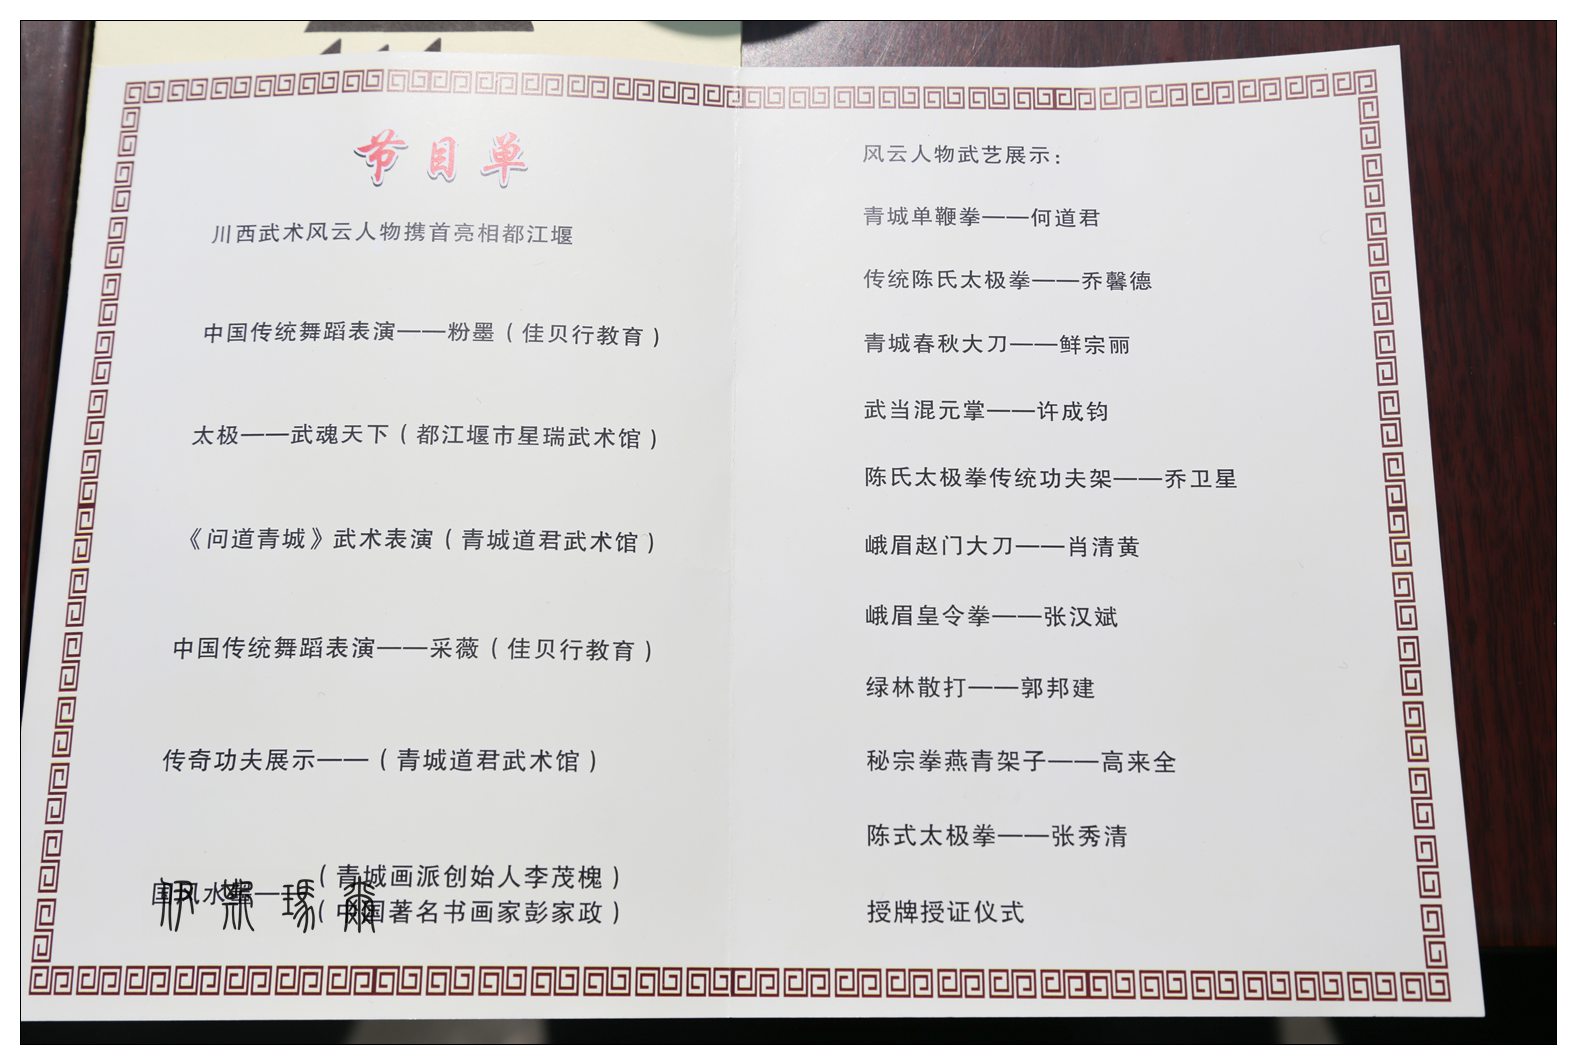 节目单
川西武术风云人物携首亮相都江堰
中国传统舞蹈表演——粉墨（佳贝行教育）
太极——武魂天下（都江堰市星瑞武术馆）
《问道青城》武术表演（青城道君武术馆）
中国传统舞蹈表演——采薇（佳贝行教育）
传奇功夫展示——（青城道君武术馆）
（青城画派创始人李茂槐）
国风水墨——
（中国著名书画家彭家政）
风云人物武艺展示：
青城单鞭拳——何道君
传统陈氏太极拳——乔馨德
青城春秋大刀——鲜宗丽
武当混元掌——许成钧
陈氏太极拳传统功夫架——乔卫星
峨眉赵门大刀——肖清黄
峨眉皇令拳——张汉斌
绿林散打——郭邦建
秘宗拳燕青架子——高来全
陈式太极拳——张秀清
授牌授证仪式